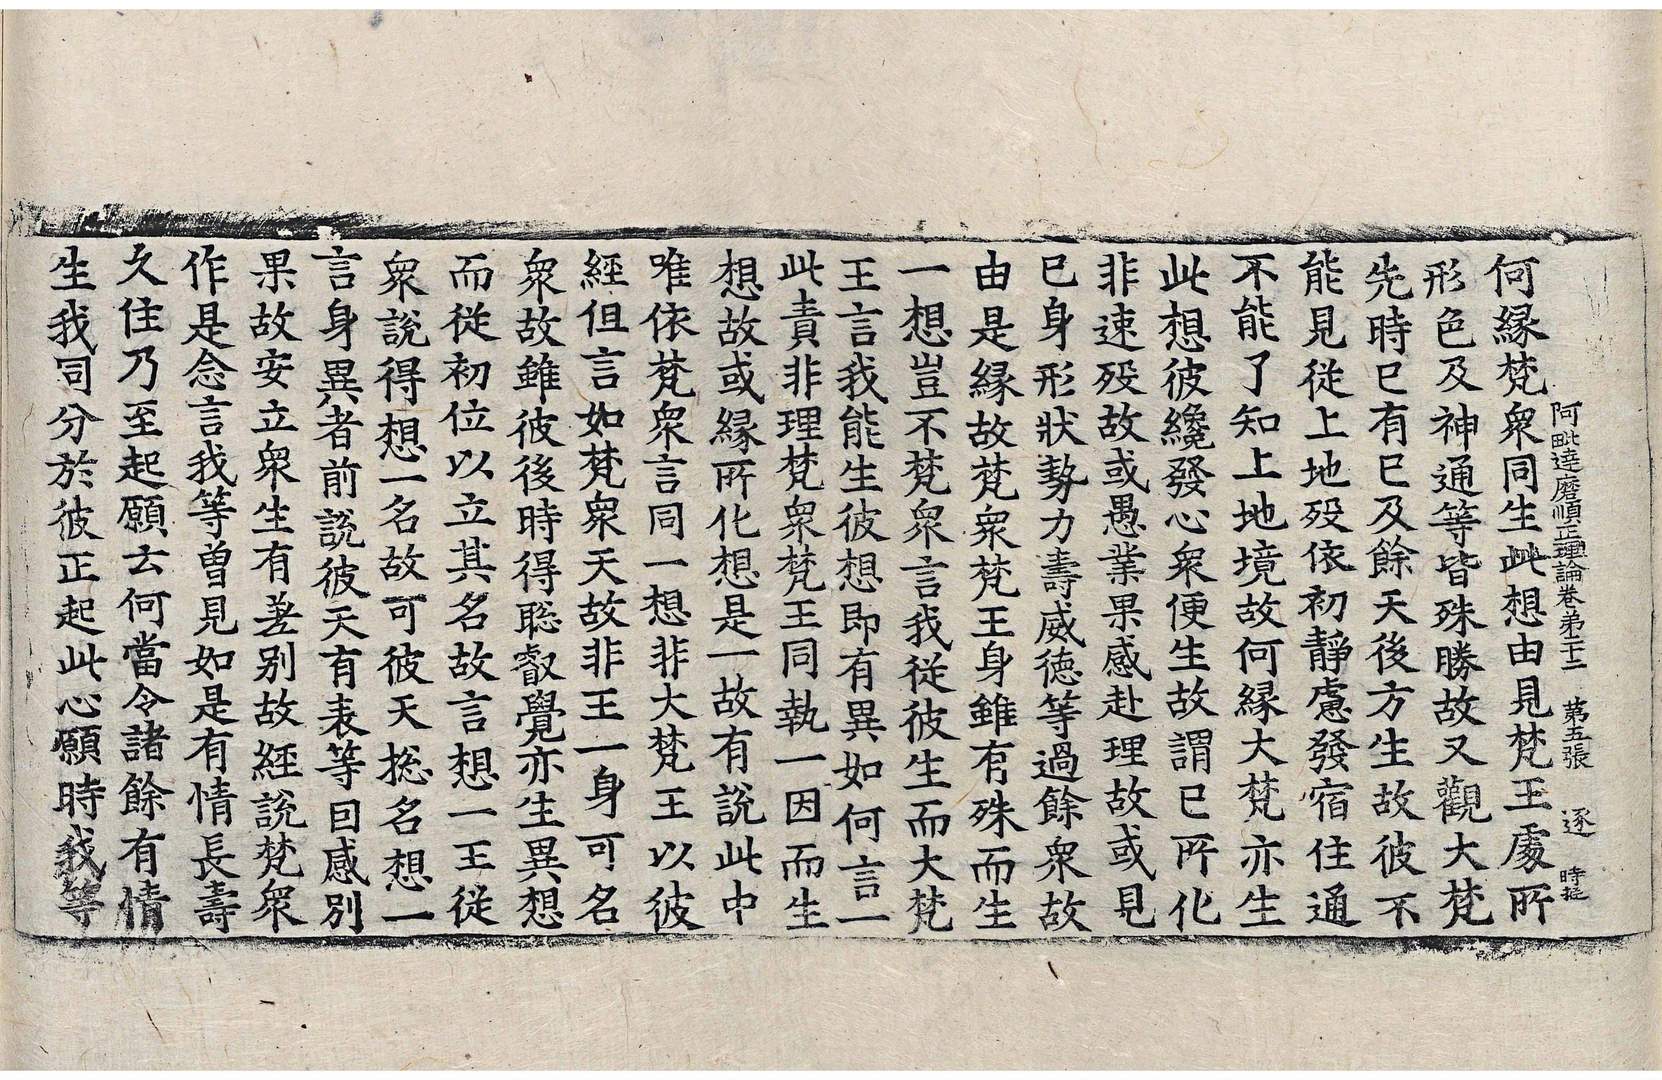 阿毗達磨順正理論卷第二十二　第五張　逐　時挺
何縁梵衆同生此想由見梵王處所
形色及神通等皆殊勝故又觀大梵
先時已有已及餘天後方生故彼不
能見從上地歿依初靜慮發宿住通
不能了知上地境故何縁大梵亦生
此想彼纔發心衆便生故謂已所化
非速歿故或愚業果感赴理故或見
已身形狀勢力壽威德等過餘衆故
由是縁故梵衆梵王身雖有殊而生
一想豈不梵衆言我從彼生而大梵
王言我能生彼想即有異如何言一
此責非理梵衆梵王同執一因而生
想故或縁所化想是一故有說此中
唯依梵衆言同一想非大梵王以彼
經但言如梵衆天故非王一身可名
衆故雖彼後時得聡叡覺亦生異想
而從初位以立其名故言想一王從
衆說得想一名故可彼天捴名想一
言身異者前說彼天有表等因感別
果故安立衆生有差別故經說梵衆
作是念言我等曽見如是有情長壽
久住乃至起願云何當令諸餘有情
生我同分於彼正起此心願時我等